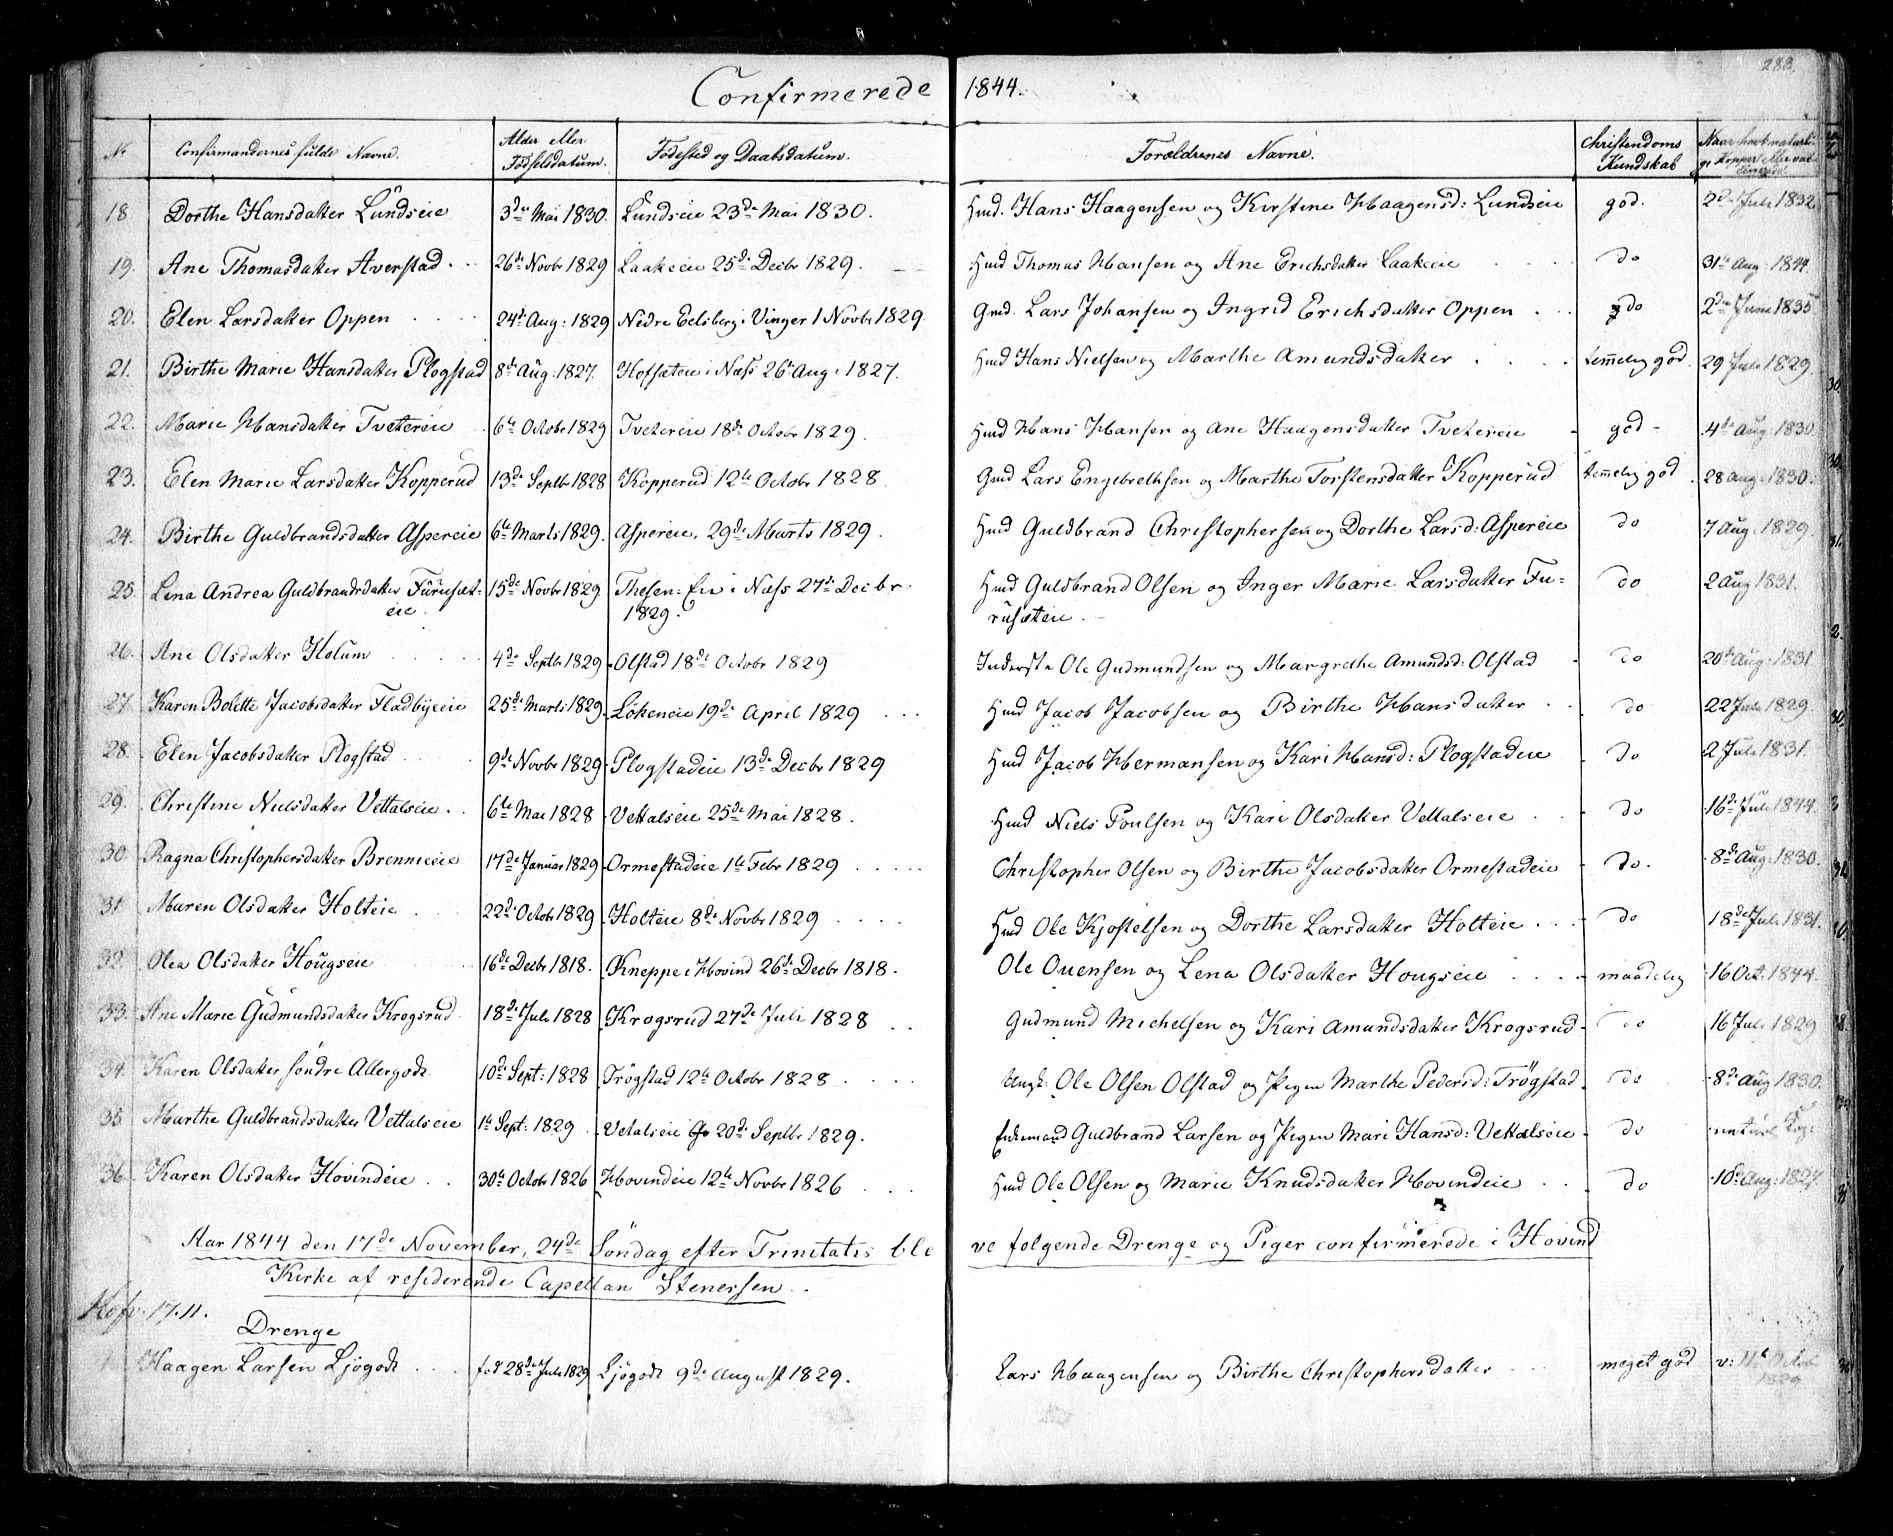 288.
Confirmerede 1844.
No Confirmandernes fulde Navne. Alder eller Fødselsdatum. Fødested og Daabsdatum. Forældrenes Navne. Christendoms Kundskab Naar havt naturlige Kopper eller vaccinerede
18. Dorthe Hansdatter Lundseie 3de Mai 1830. Lundseie 23de Mai 1830. Huusmd. Hans Haagensen og Kirstine Haagensd: Lundseie god. 2de Juli 1832
19. Ane Thomasdatter Averstad 26de Novbr 1829 Laakeeie 25de Decbr 1829. Hmd Thomas Hansen og Ane Erichsdatter Laakeeie do 31te Aug: 1844
20. Elen Larsdatter Oppen 24de Aug: 1829 Nedre Eelsberg i Vinger 1 Novbr 1829. Gmd. Lars Johansen og Ingrid Erichsdatter Oppen do 2den Juni 1835
21. Birthe Marie Hansdatter Plogstad 8de Aug: 1827. Hofsæteie i Næss 26de Aug: 1827. Hmd Hans Nielsen og Marthe Amundsdatter temelig god 29 Juli 1829.
22. Marie Hansdatter Tvetereie 6te Octobr 1829 Tvetereie 18de Octobr 1829. Hmd Hans Hansen og Ane Haagensdatter Tvetereie god 4de Aug: 1830.
23. Elen Marie Larsdatter Kopperud 13de Septbr 1828 Kopperud 12te Octobr 1828. Gmd Lars Engebrethsen og Marthe Torstensdatter Kopperud temelig god 28 Aug: 1830.
24. Birthe Guldbrandsdatter Aspereie 6te Marts 1829. Aspereie, 29de Marts 1829. Hmd Guldbrand Christophersen og Dorthe Larsd: Aspereie do 7 Aug: 1829
25. Lena Andrea Guldbrandsdatter Furuset- 15de Novbr 1829 Thesen-Eie i Næss 27de Decbr. Hmd Guldbrand Olsen og Inger Marie Larsdatter Fu- do 2 Aug 1831.
eie. 1829. rusæteie.
26. Ane Olsdatter Holum 4de Septbr 1829 Olstad 18de Octobr 1829 Inderst Ole Gudmundsen og Margrethe Amundsd: Olstad do 20de Aug: 1831
27. Karen Bolette Jacobsdatter Fladbyeie 25de Marts 1829. Løkeneie 19de April 1829 Hmd Jacob Jacobsen og Birthe Hansdatter do 22 Juli 1829
28. Elen Jacobsdatter Plogstad 9de Novbr 1829 Plogstadeie 13de Decbr 1829 Hmd Jacob Hermansen og Kari Hansd: Plogstadeie do 2 Juli 1831.
29. Christine Nielsdatter Vettalseie 6te Mai 1828 Vettalseie 25de Mai 1828. Hmd Niels Poulsen og Kari Olsdatter Vettalseie do 16de Juli 1844.
30. Ragna Christophersdatter Brennieeie 17de Januar 1829 Ormestadeie 1te Febr 1829 Christopher Olsen og Birthe Jacobsdatter Ormestadeie do. 8de Aug: 1830.
31 Maren Olsdatter Holteie 22de Octobr 1829 Holteie 8de Novbr 1829 Hmd Ole Kjostelsen og Dorthe Larsdatter Holteie do 18de Juli 1831.
32 Olea Olsdatter Hougseie 16de Decbr 1818. Kneppe i Hovind 26de Decbr 1818. Ole Ouensen og Lena Olsdatter Hougseie maadelig 16 Oct: 1844.
33 Ane Marie Gudmundsdatter Krogsrud 18de Juli 1828 Krogsrud 27de Juli 1828 Gudmund Michelsen og Kari Amundsdatter Krogsrud do 16 Juli 1829
34 Karen Olsdatter søndre Allergodt 10de Sept: 1828 Trøgstad 12te Octobr 1828 Ungk: Ole Olsen Olstad og Pigen Marthe Pedersd: Trøgstad do 8de Aug 1830.
35. Marthe Guldbrandsdatter Vettalseie 1te Sept: 1829 Vetalseie 20de Septbr 1829. Enkemand Guldbrand Larsen og Pigen Mari Hansd: Vettalseie do naturl Kop:
36. Karen Olsdatter Hovindeie 30te Octobr 1826 Hovindeie 12te Novbr 1826 Hmd Ole Olsen og Marie Knudsdatter Hovindeie do 10de Aug: 1827.
Aar 1844 den 17de November, 24de Søndag efter Trinitatis bleve følgende Drenge og Piger confirmerede i Hovind
Kirke af residerende Capellan Stenersen.
17.11.
Drenge
1 Haagen Larsen Ljøgodt fød 28de Juli 1829 Ljøgodt 9de August 1829. Lars Haagensen og Birthe Christophersdatter meget god v: 11te Octob
1829